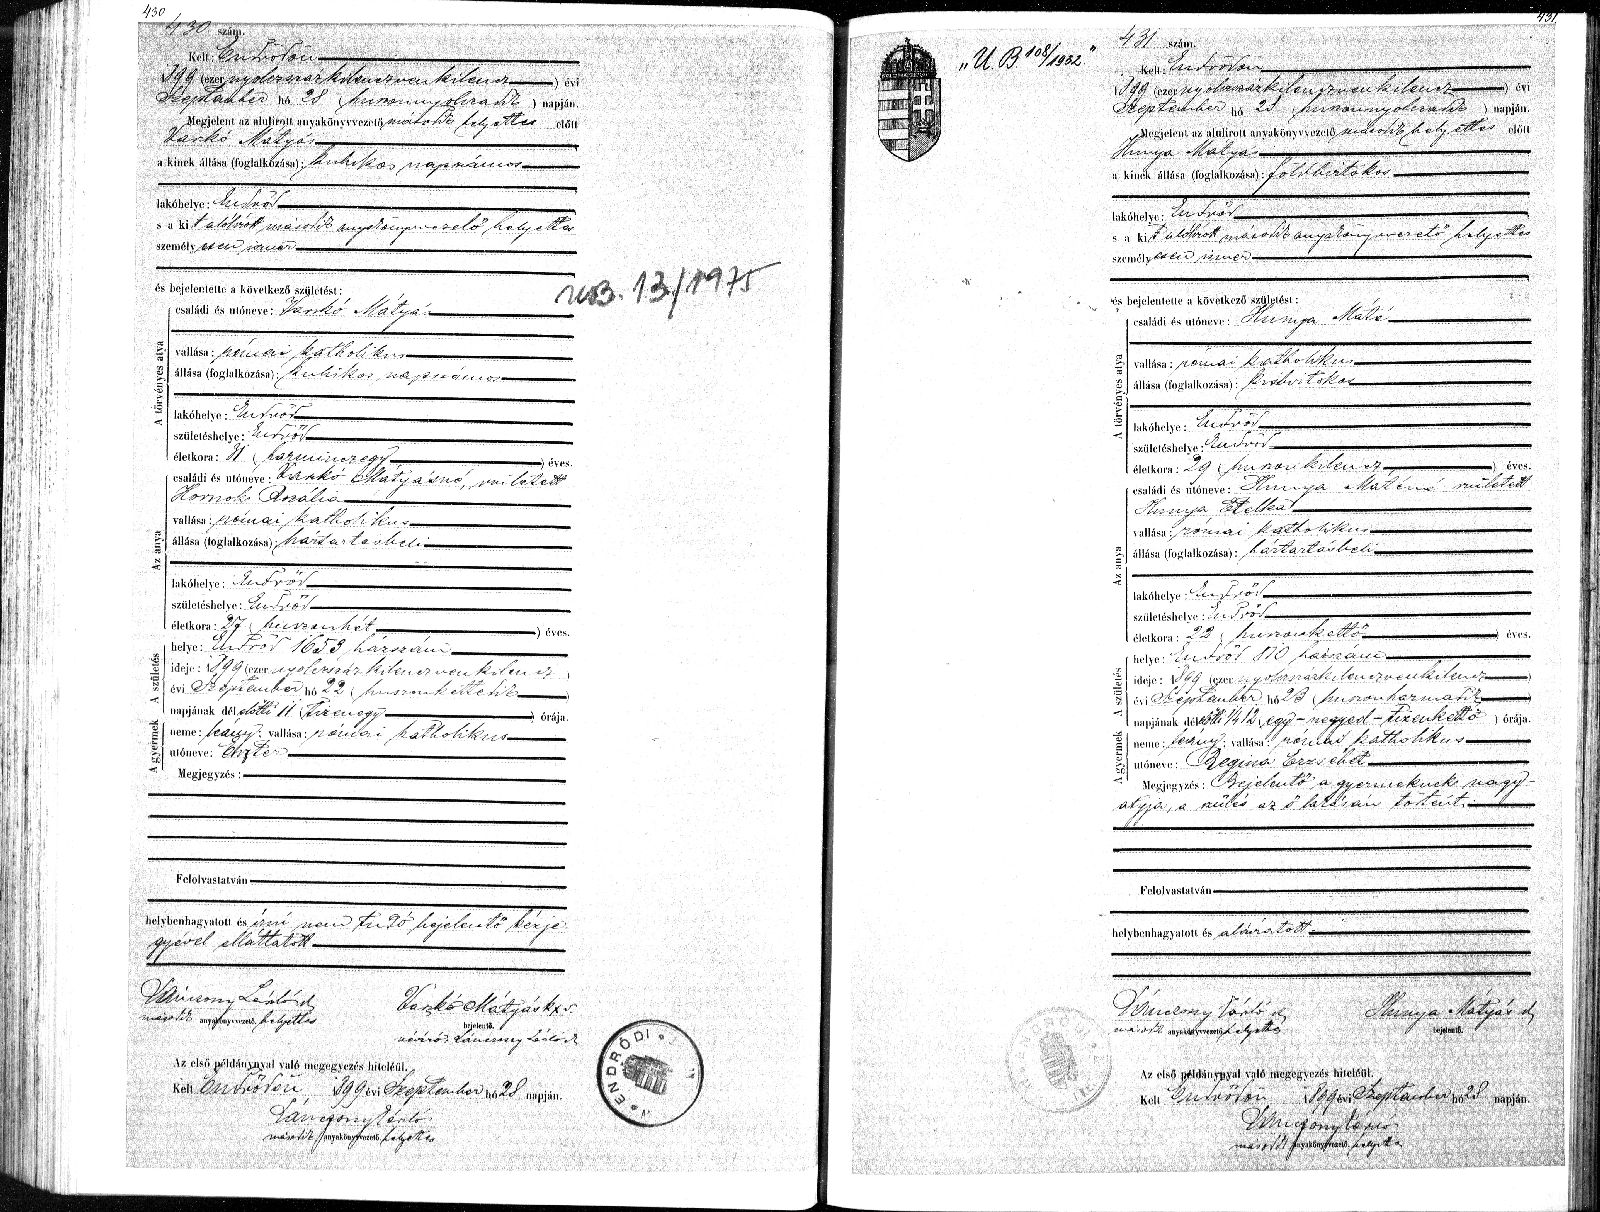 430
430 szám.
Kelt Endrődön
1899 (ezernyolczszázkilenczvenkilencz) évi
Szeptember hó 28 (huszonnyolczadik) napján.
Megjelent az alulirott anyakönyvvezető második helyettes előtt
Varkó Mátyás
a kinek állása (foglalkozása): kubikos napszámos
lakóhelye: Endrőd
s a kit alólirott második anyakönyvvezető helyettes
személyesen ismer
és bejelentette a következő születést:
A törvényes atya
családi és utóneve: Varkó Mátyás
vallása: római katholikus
állása (foglalkozása): kubikos napszámos
lakóhelye: Endrőd
születéshelye: Endrőd
életkora: 31 (harminczegy) éves.
Az anya
családi és utóneve: Varkó Mátyásné, született
Hornok Rozália
vallása: római katholikus
állása (foglalkozása): háztartásbeli
lakóhelye: Endrőd
születéshelye: Endrőd
életkora: 27 (huszonhét) éves.
A születés
helye: Endrőd 1653 házszám
ideje: 1899 (ezernyolczszázkilenczvenkilencz)
évi Szeptember hó 22 (huszonkettedik)
napjának délelőtti 11 (tizenegy) órája.
A gyermek
neme: leány; vallása: római katholikus
utóneve: Eszter
Megjegyzés:
Felolvastatván
helybenhagyatott és írni nem tudó bejelentő kézje-
gyével elláttatott
Váncsony László
második anyakönyvvezető helyettes
Varkó Mátyás k x v.
bejelentő.
névíró: Váncsony László
Az első példánynyal való megegyezés hiteléül.
Kelt Endrődön, 1899 évi Szeptember hó 28 napján.
Váncsony László
második anyakönyvvezető helyettes
U.B. 13/1975
ENDRŐDI
431
„U B 108/1932”
431 szám.
Kelt Endrődön
1899 (ezernyolczszázkilenczvenkilencz) évi
Szeptember hó 28 (huszonnyolczadik) napján.
Megjelent az alulirott anyakönyvvezető második helyettes előtt
Hunya Mátyás
a kinek állása (foglalkozása): földbirtokos
lakóhelye: Endrőd
s a kit alólirott második anyakönyvvezető helyettes
személyesen ismer
és bejelentette a következő születést:
A törvényes atya
családi és utóneve: Hunya Máté
vallása: római katholikus
állása (foglalkozása):
lakóhelye: Endrőd
születéshelye: Endrőd
életkora: 29 (huszonkilencz) éves.
Az anya
családi és utóneve: Hunya Máténé született
Hunya Etelka
vallása: római katholikus
állása (foglalkozása): háztartásbeli
lakóhelye: Endrőd
születéshelye: Endrőd
életkora: 22 (huszonkettő) éves.
A születés
helye: Endrőd 170 házszám
ideje: 1899 (ezernyolczszázkilenczvenkilencz)
évi Szeptember hó 23 (huszonharmadik)
napjának délelőtti 1/4 12 (egy-negyed-tizenkettő) órája.
A gyermek
neme: leány; vallása: római katholikus
utóneve: Regina Erzsébet
Megjegyzés: Bejelentő a gyermeknek nagy-
atyja, a szülés az ő házánál történt.
Felolvastatván
helybenhagyatott és aláíratott
Váncsony László
második anyakönyvvezető helyettes
Hunya Mátyás
bejelentő.
Az első példánynyal való megegyezés hiteléül.
Kelt Endrődön 1899 évi Szeptember hó 28 napján.
Váncsony László
második anyakönyvvezető helyettes